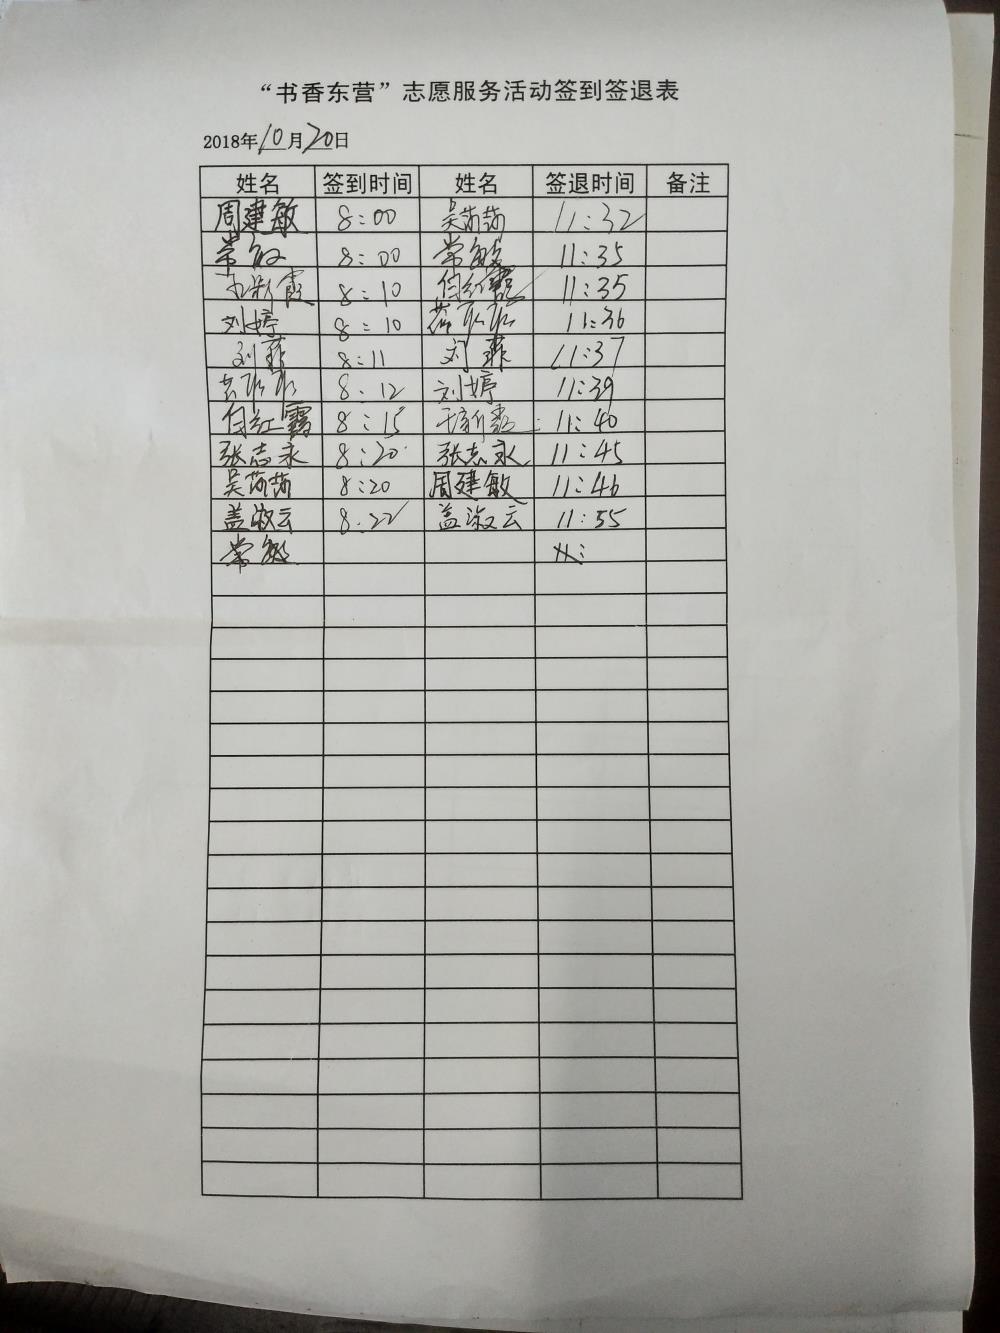 “书香东营”志愿服务活动签到签退表
2018年10月20日
姓名 签到时间 姓名 签退时间 备注
周建敏 8:00 吴莎莎 11:32
常敏 8:00 常敏 11:35
8:10 11:35
刘婷 8:10 11:36
刘菲 8:11 刘菲 11:37
8:12 刘婷 11:39
8:15 11:40
张志永 8:20 张志永 11:45
吴莎莎 8:20 周建敏 11:46
盖淑云 8:22 盖淑云 11:55
常敏